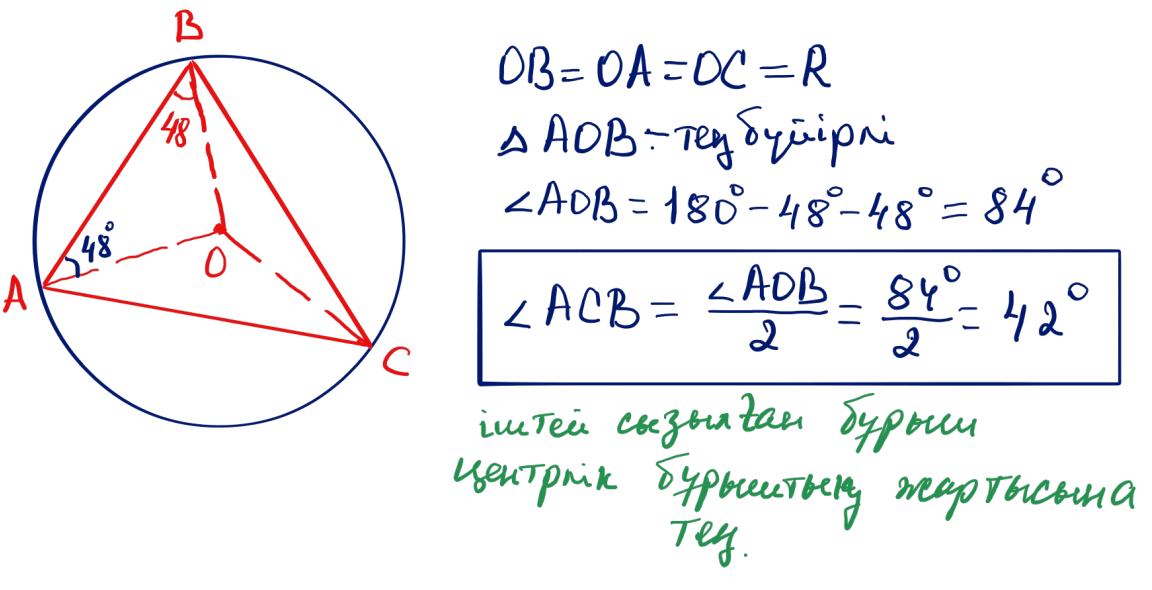 B
48
48°
A
O
C
OB = OA = OC = R
△ AOB - тең бүйірлі
∠AOB = 180° - 48° - 48° = 84°
∠ACB = ∠AOB/2 = 84°/2 = 42°
іштей сызылған бұрыш
центрлік бұрыштың жартысына
тең.